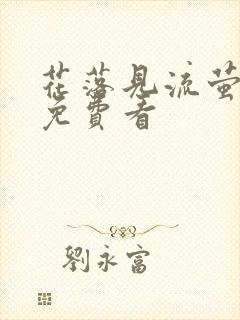 花落見流萤
免費看
劉永富